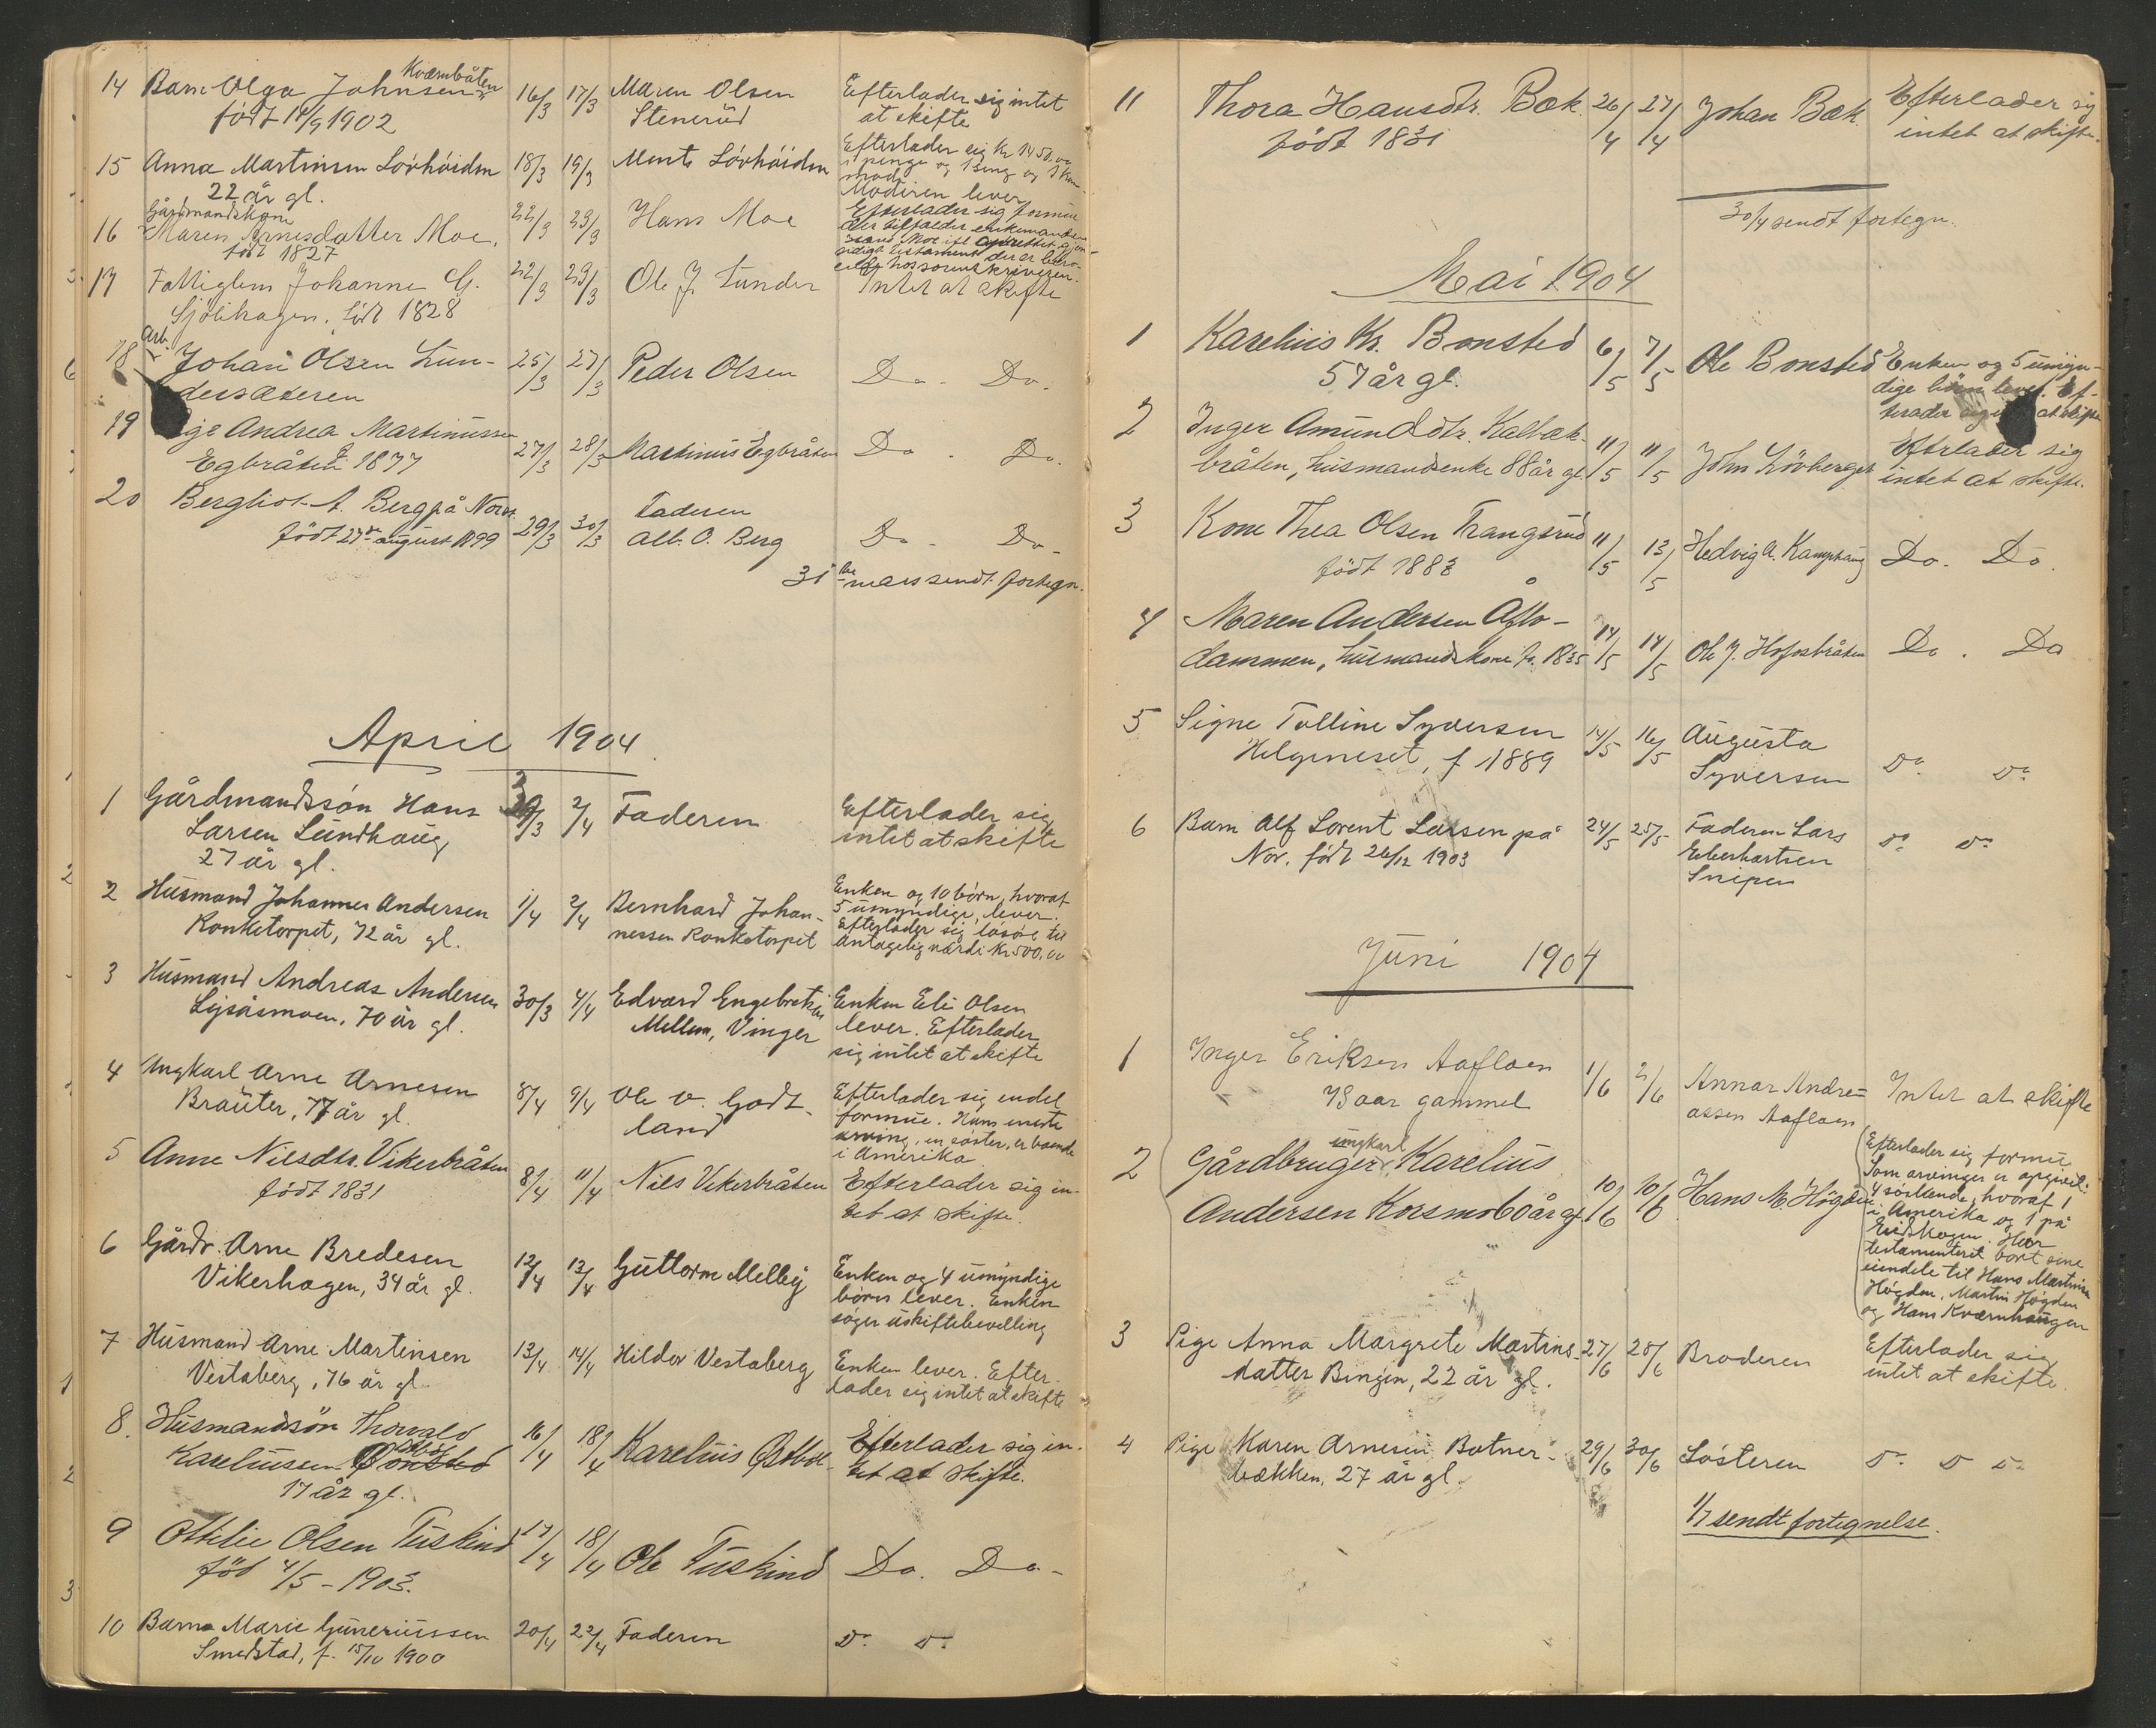 14 Barn Olga Johnsen Kværnbåten 16/3 17/3 Maren Olsen Efterlader sig intet
født 14/9 1902 Stenerüd at skifte
15 Anna Martinsen Lövhöiden 18/3 19/3 Mente Lövhöiden Efterlader sig Kr 1450.00
22 år gl. i penge og 1 seng og 1 kom-
mode
Moderen lever
16 Gårdmandskone
Maren Arnesdatter Moe, 22/3 23/3 Hans Moe Efterlader sig formue
født 1827 der tilfalder enkemanden
Hans Moe ifl oprettet gjen-
sidigt testament der er bero-
ende hos sorenskriveren.
17 Fattiglem Johanne G. 22/3 23/3 Ole J. Sunder Intet at skifte
Sjölihagen. född 1828
18 Arb. Johan Olsen Lun- 25/3 27/3 Peder Olsen Do. Do.
dersæteren
19 Pige Andrea Martinussen 27/3 28/3 Martinus Egbråten Do. Do.
Egbråten f. 1877
20 Bergliot A. Berg på Nor 29/3 30/3 Faderen Do. Do.
född 27de august 1899 Alb. O. Berg
31te mars sendt fortegn.
April 1904
1 Gårdmandssön Hans 29/3 2/4 Faderen Efterlader sig
Larsen Lundhaug intet at skifte
27 år gl.
2 Husmand Johannes Andersen 1/4 2/4 Bernhard Johan- Enken og 10 börn, hvoraf
Ronketorpet, 72 år gl. nessen Ronketorpet 5 umyndige, lever.
Efterlader sig lösöre til
antagelig værdi Kr 500,00
3 Husmand Andreas Andersen 30/3 4/4 Edvard Engebretsen Enken Eli Olsen
Lysåsmoen, 70 år gl. Mellem, Vinger lever. Efterlader
sig intet at skifte
4 Ungkarl Arne Arnesen 8/4 9/4 Ole O. Godt- Efterlader sig endel
Braüter, 77 år gl. land formue. Hans eneste
arving, en söster, er boende
i Amerika
5 Anne Nilsdtr. Vikerbråten 8/4 11/4 Nils Vikerbråten Efterlader sig in-
född 1831 tet at skifte.
6 Gårdr. Arne Bredesen 12/4 13/4 Guttorm Melby Enken og 4 umyndige
Vikerhagen, 34 år gl. börn lever. Enken
söger uskiftebevilling
7 Husmand Arne Martinsen 13/4 14/4 Hildor Vestaberg Enken lever. Efter-
Vestaberg, 76 år gl lader sig intet at skifte
8. Husmandssön Thorvald 16/4 18/4 Karelius Østbøl Efterlader sig in-
Kareliussen tet at skifte.
17 år gl.
9 Ottilie Olsen Tuskind 17/4 18/4 Ole Tuskind Do. Do.
född 4/5 - 1903.
10 Barn Marie Guneriussen 20/4 22/4 Faderen Do. Do.
Smedstad, f. 15/10 1900
11 Thora Hansdtr. Bæk 26/4 27/4 Johan Bæk. Efterlader sig
född 1831 intet at skifte.
30/4 sendt fortegn.
Mai 1904
1 Karelius Kr. Bonsted 6/5 7/5 Ole Bonsted Enken og 5 umyn-
57 år gl. dige börn lever. Ef-
terlader sig at skifte
2 Inger Amundsdtr. Kalbæk- 11/5 11/5 John Lövberget Efterlader sig
bråten, husmandsenke 88 år gl. intet at skifte.
3 Kone Thea Olsen Trangsrud 11/5 13/5 Hedvig A. Kamphaug Do. Do.
född 1883
4 Maren Andersen Åflo- 14/5 14/5 Ole J. Hofosbråten Do. Do
dammen, husmandskone f. 1835
5 Signe Talline Syversen 14/5 16/5 Augusta
Helgeneset, f 1889 Syversen Do. Do.
6 Barn Alf Lorent Larsen på 24/5 25/5 Faderen Lars Do. Do.
Nor. född 26/12 1903 Eberhartsen
Snipen
Juni 1904
1 Inger Eriksen Aafloen 1/6 2/6 Annar Andre- Intet at skifte
73 aar gammel assen Aafloen
2 Gårdbruger ungkarl Karelius 10/6 10/6 Hans M. Högden Efterlader sig formue
Andersen Korsmo 60 år gl Som arvinger er opgivet:
4 söskende, hvoraf 1
i Amerika og 1 på
Eidskogen. Har
testamenteret bort sine
eiendele til Hans Martinsen
Högden, Martin Högden
og Hans Kværnhaugen
3 Pige Anna Margrete Martins- 27/6 28/6 Broderen Efterlader sig
datter Bingen, 22 år gl. intet at skifte.
4 Pige Karen Arnesen Botner- 29/6 30/6 Lösteren Do. D Do.
bækken, 27 år gl.
1/7 sendt fortegnelse.